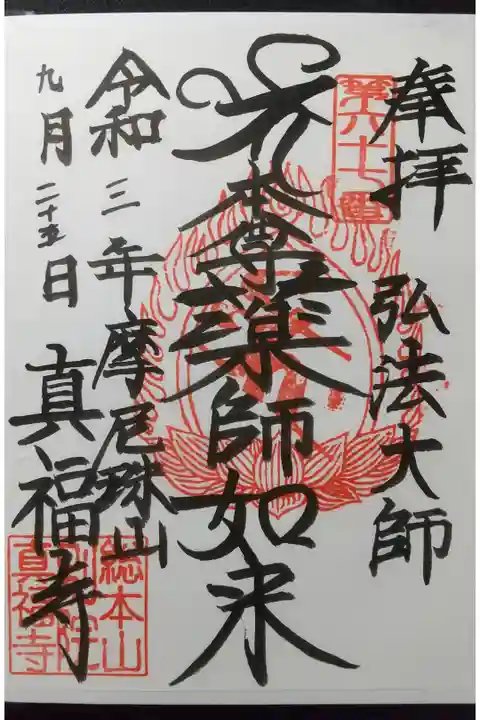 奉拝 弘法大師
第六十七番
本尊薬師如来
令和三年摩尼珠山
九月二十五日 真福寺
総本山
別院
真福寺